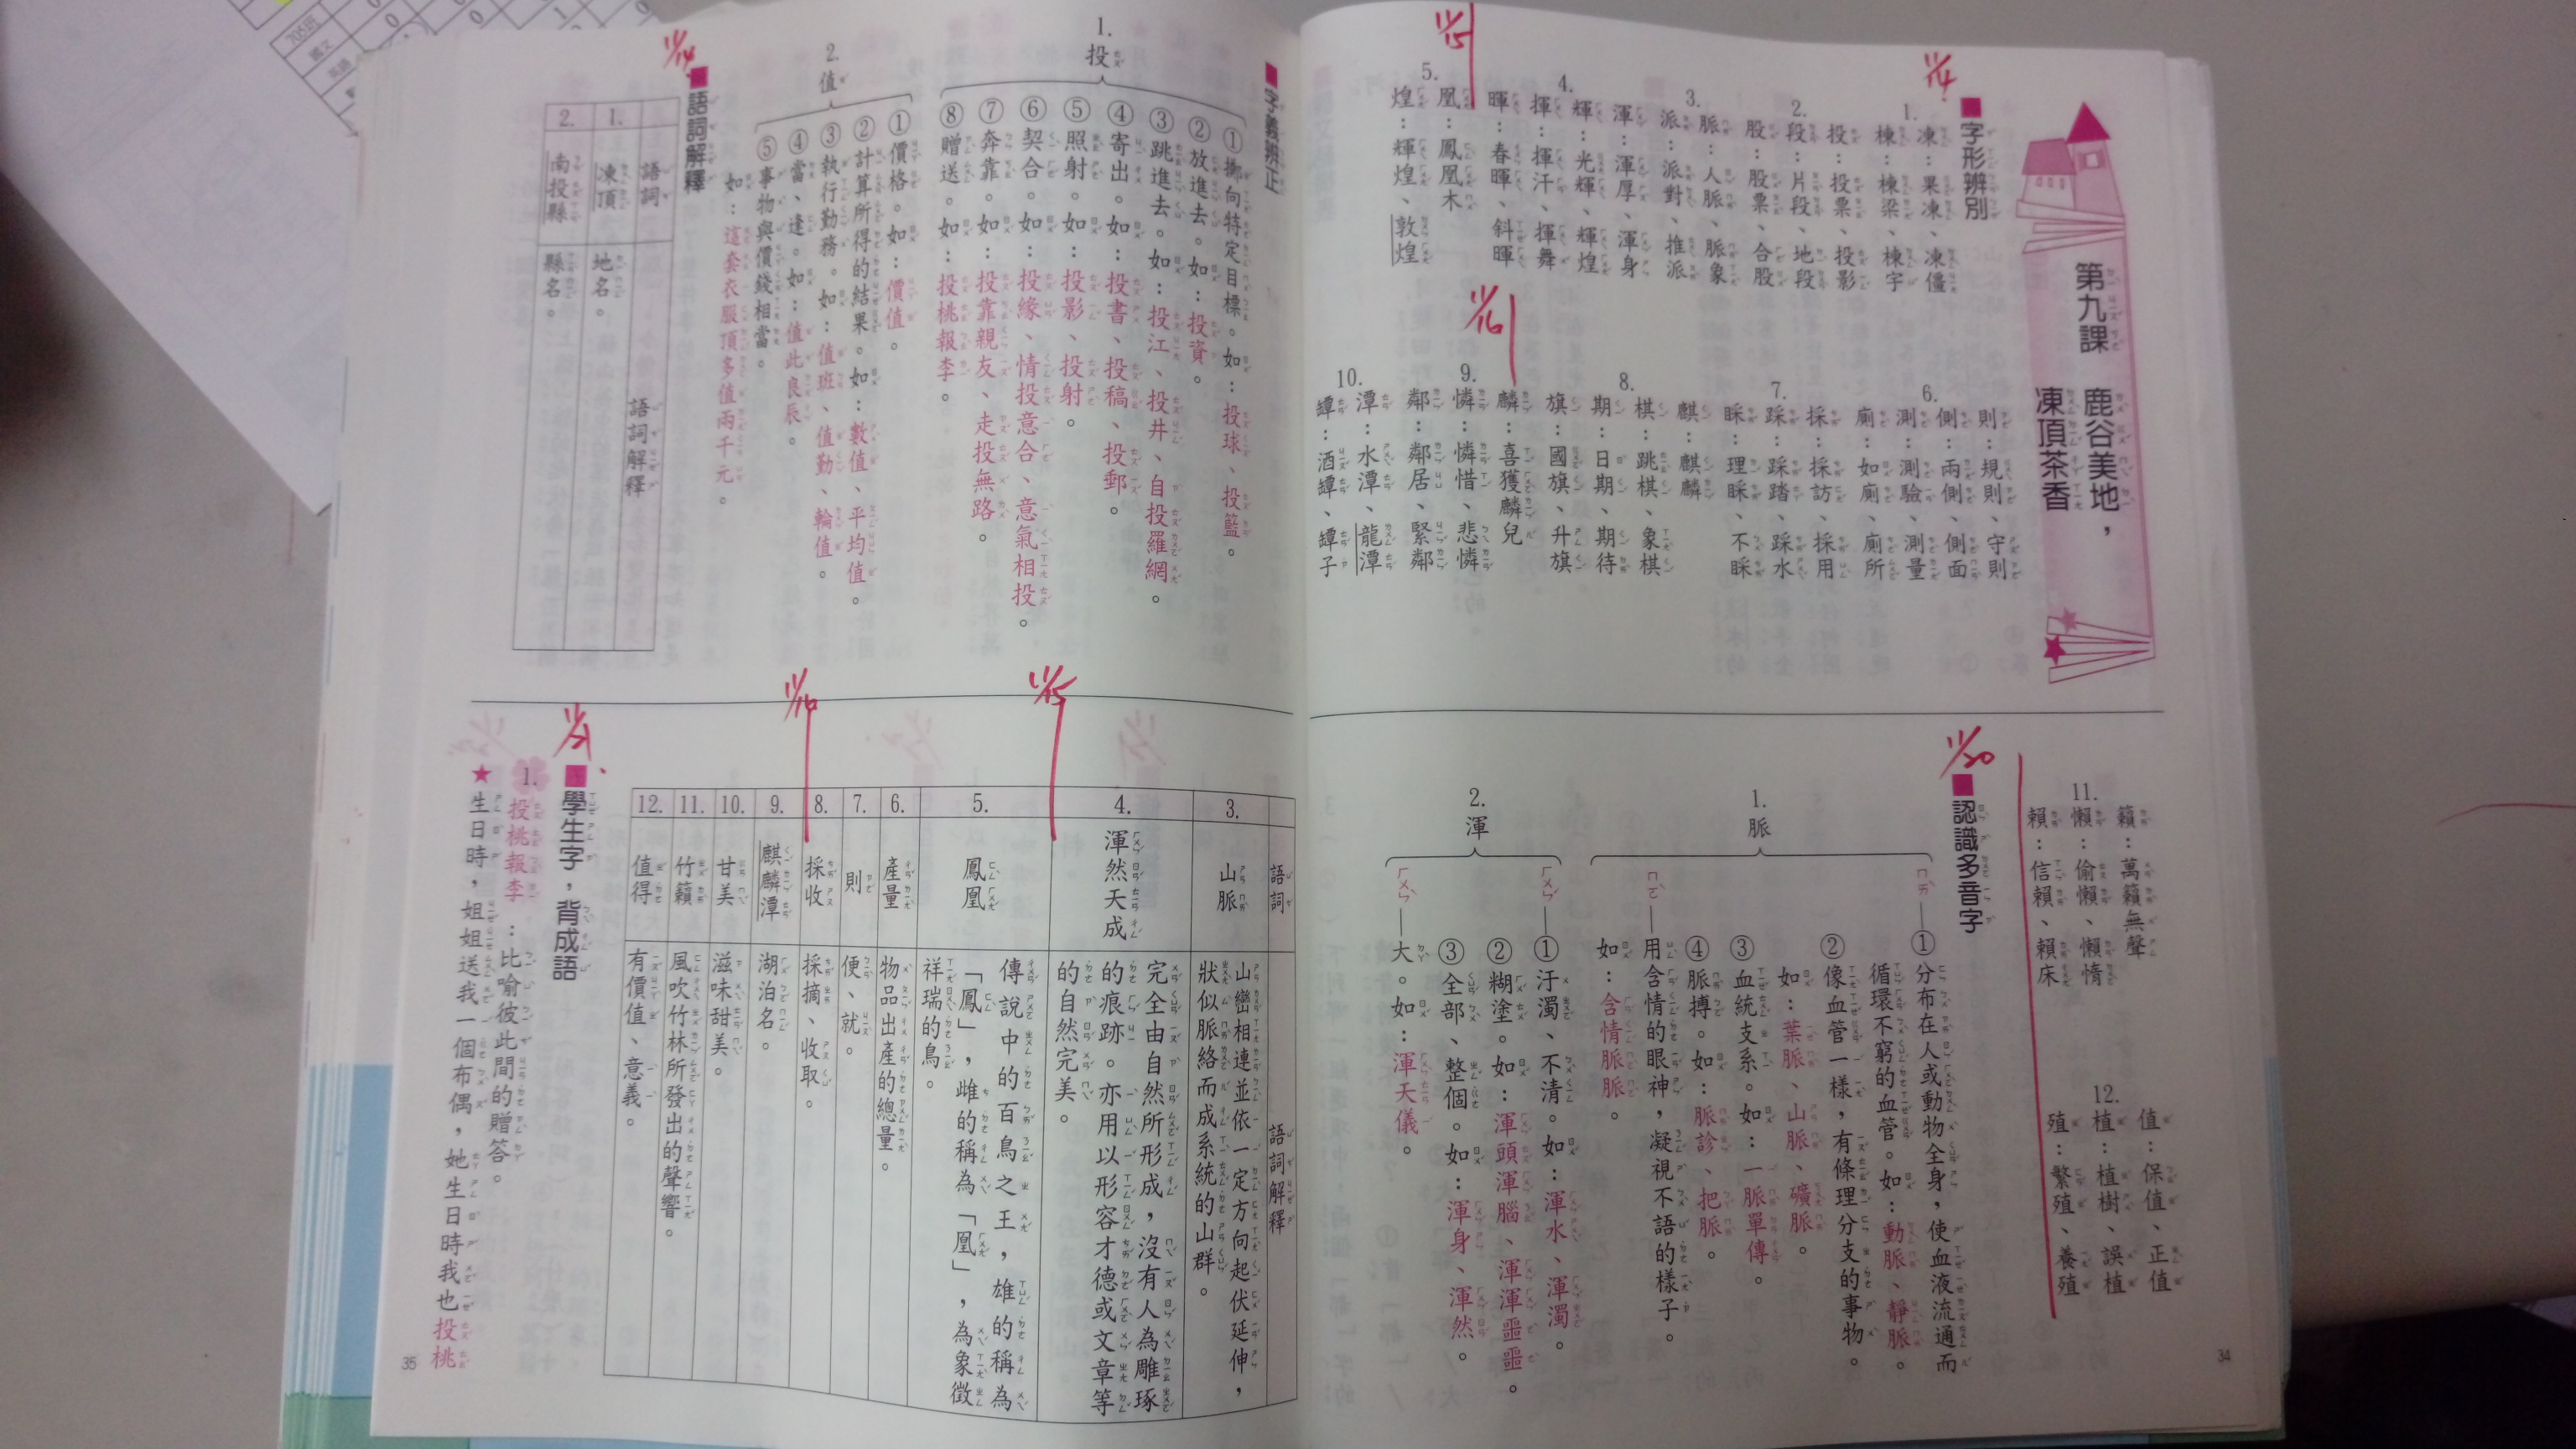 第九課
鹿谷美地，
凍頂茶香
11/14
■字形辨別
1.
凍：果凍、凍僵
棟：棟梁、棟宇
2.
投：投票、投影
段：片段、地段
股：股票、合股
3.
脈：人脈、脈象
派：派對、推派
4.
渾：渾厚、渾身
輝：光輝、輝煌
揮：揮汗、揮舞
暉：春暉、斜暉
11/15
5.
凰：鳳凰木
煌：輝煌、敦煌
6.
則：規則、守則
側：兩側、側面
測：測驗、測量
廁：如廁、廁所
7.
採：採訪、採用
踩：踩踏、踩水
睬：理睬、不睬
8.
麒：麒麟
棋：跳棋、象棋
期：日期、期待
旗：國旗、升旗
11/16
9.
麟：喜獲麟兒
憐：憐惜、悲憐
鄰：鄰居、緊鄰
10.
潭：水潭、龍潭
罈：酒罈、罈子
11.
籟：萬籟無聲
懶：偷懶、懶惰
賴：信賴、賴床
12.
值：保值、正值
植：植樹、誤植
殖：繁殖、養殖
11/20
■認識多音字
1.
脈
ㄇㄞˋ—①分布在人或動物全身，使血液流通而
循環不窮的血管。如：動脈、靜脈。
②像血管一樣，有條理分支的事物。
如：葉脈、山脈、礦脈。
③血統支系。如：一脈單傳。
④脈搏。如：脈診、把脈。
ㄇㄛˋ—用含情的眼神，凝視不語的樣子。
如：含情脈脈。
2.
渾
ㄏㄨㄣˊ—①汙濁、不清。如：渾水、渾濁。
②糊塗。如：渾頭渾腦、渾渾噩噩。
③全部、整個。如：渾身、渾然。
ㄏㄨㄣˋ—大。如：渾天儀。
34
■字義辨正
1.
投
①擲向特定目標。如：投球、投籃。
②放進去。如：投資。
③跳進去。如：投江、投井、自投羅網。
④寄出。如：投書、投稿、投郵。
⑤照射。如：投影、投射。
⑥契合。如：投緣、情投意合、意氣相投。
⑦奔靠。如：投靠親友、走投無路。
⑧贈送。如：投桃報李。
2.
值
①價格。如：價值。
②計算所得的結果。如：數值、平均值。
③執行勤務。如：值班、值勤、輪值。
④當、逢。如：值此良辰。
⑤事物與價錢相當。
如：這套衣服頂多值兩千元。
11/14
■語詞解釋
語詞 語詞解釋
1. 凍頂 地名。
2. 南投縣 縣名。
語詞 語詞解釋
3. 山脈 山巒相連並依一定方向起伏延伸，
狀似脈絡而成系統的山群。
11/15
4. 渾然天成 完全由自然所形成，沒有人為雕琢
的痕跡。亦用以形容才德或文章等
的自然完美。
5. 鳳凰 傳說中的百鳥之王，雄的稱為
「鳳」，雌的稱為「凰」，為象徵
祥瑞的鳥。
6. 產量 物品出產的總量。
7. 則 便、就。
11/16
8. 採收 採摘、收取。
9. 麒麟潭 湖泊名。
10. 甘美 滋味甜美。
11. 竹籟 風吹竹林所發出的聲響。
12. 值得 有價值、意義。
11/21
■學生字，背成語
1.
投桃報李：比喻彼此間的贈答。
★生日時，姐姐送我一個布偶，她生日時我也投桃
35